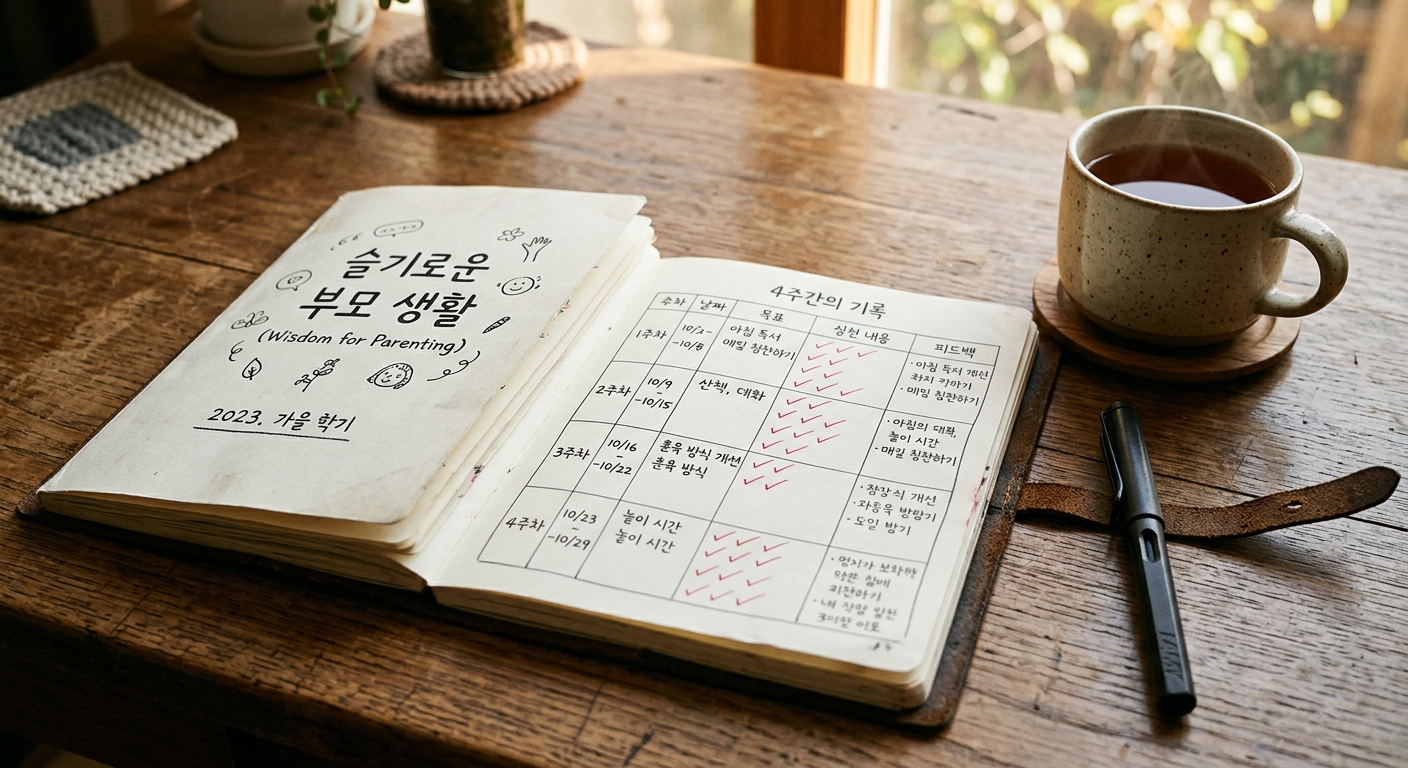 슬기로운
부모 생활
(Wisdom for Parenting)
2023. 가을 학기
4주간의 기록
주차 날짜 목표 실천 내용 피드백
1주차
10/2-
-10/8
아침 독서
매일 칭찬하기
· 아침 독서 개선
· 매일 칭찬하기
2주차
10/9
-10/15
산책, 대화
· 아침의 대화,
놀이 시간
· 매일 칭찬하기
3주차
10/16
-
-10/22
훈육 방식 개선
훈육 방식
개선
4주차
10/23
-
-10/29
놀이 시간
놀이 시간